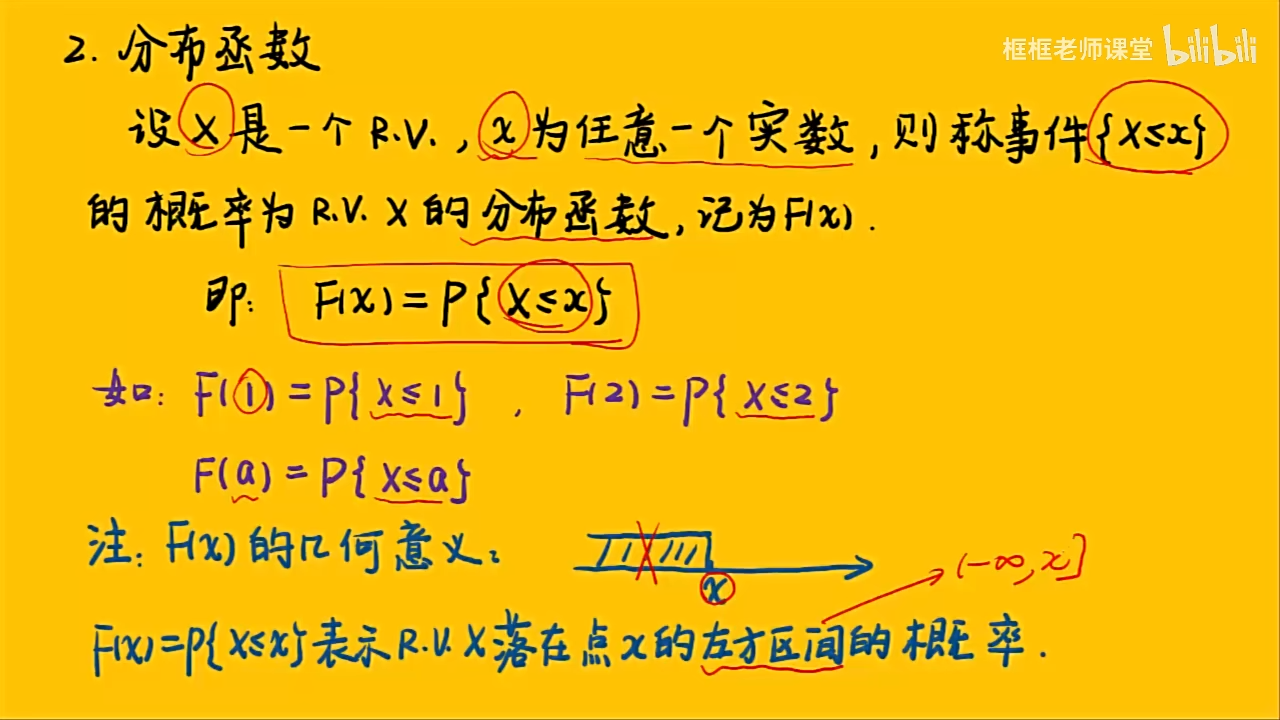 框框老师课堂 bilibili
2. 分布函数
设X是一个R.V.,x为任意一个实数,则称事件{X≤x}
的概率为R.V. X的分布函数,记为F(x).
即: F(x)=P{X≤x}
如: F(1)=P{X≤1} , F(2)=P{X≤2}
F(a)=P{X≤a}
注: F(x)的几何意义:
X
x
(-∞,x]
F(x)=P{X≤x}表示R.V.X落在点x的左方区间的概率.